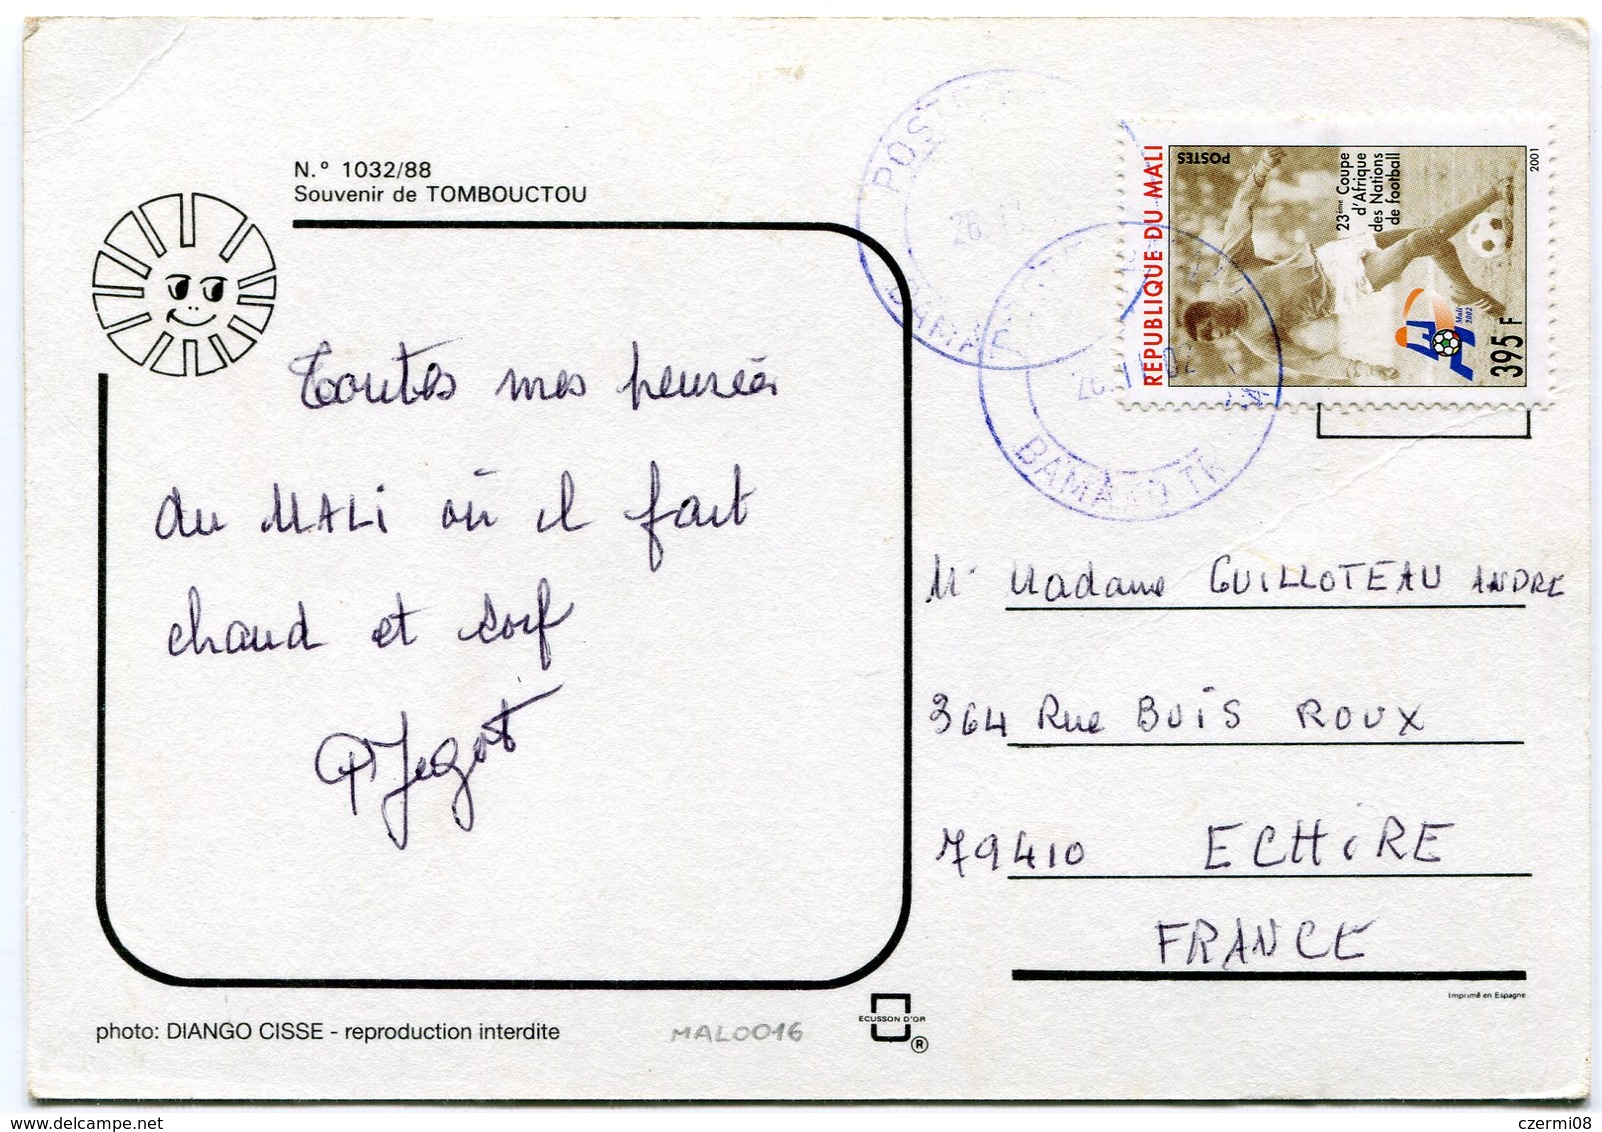 N.º 1032/88
Souvenir de TOMBOUCTOU
Toutes mes pensées
du MALI où il fait
chaud et soif
P Jegot
photo: DIANGO CISSE - reproduction interdite
MAL0016
ECUSSON D'OR
®
REPUBLIQUE DU MALI
POSTES
23ème Coupe
d'Afrique
des Nations
de football
2001
Mali
2002
395 F
BAMAKO
Mr Madame GUILLOTEAU ANDRE
364 Rue BOIS ROUX
79410 ECHIRE
FRANCE
Imprimé en Espagne
www.delcampe.net
czermi08